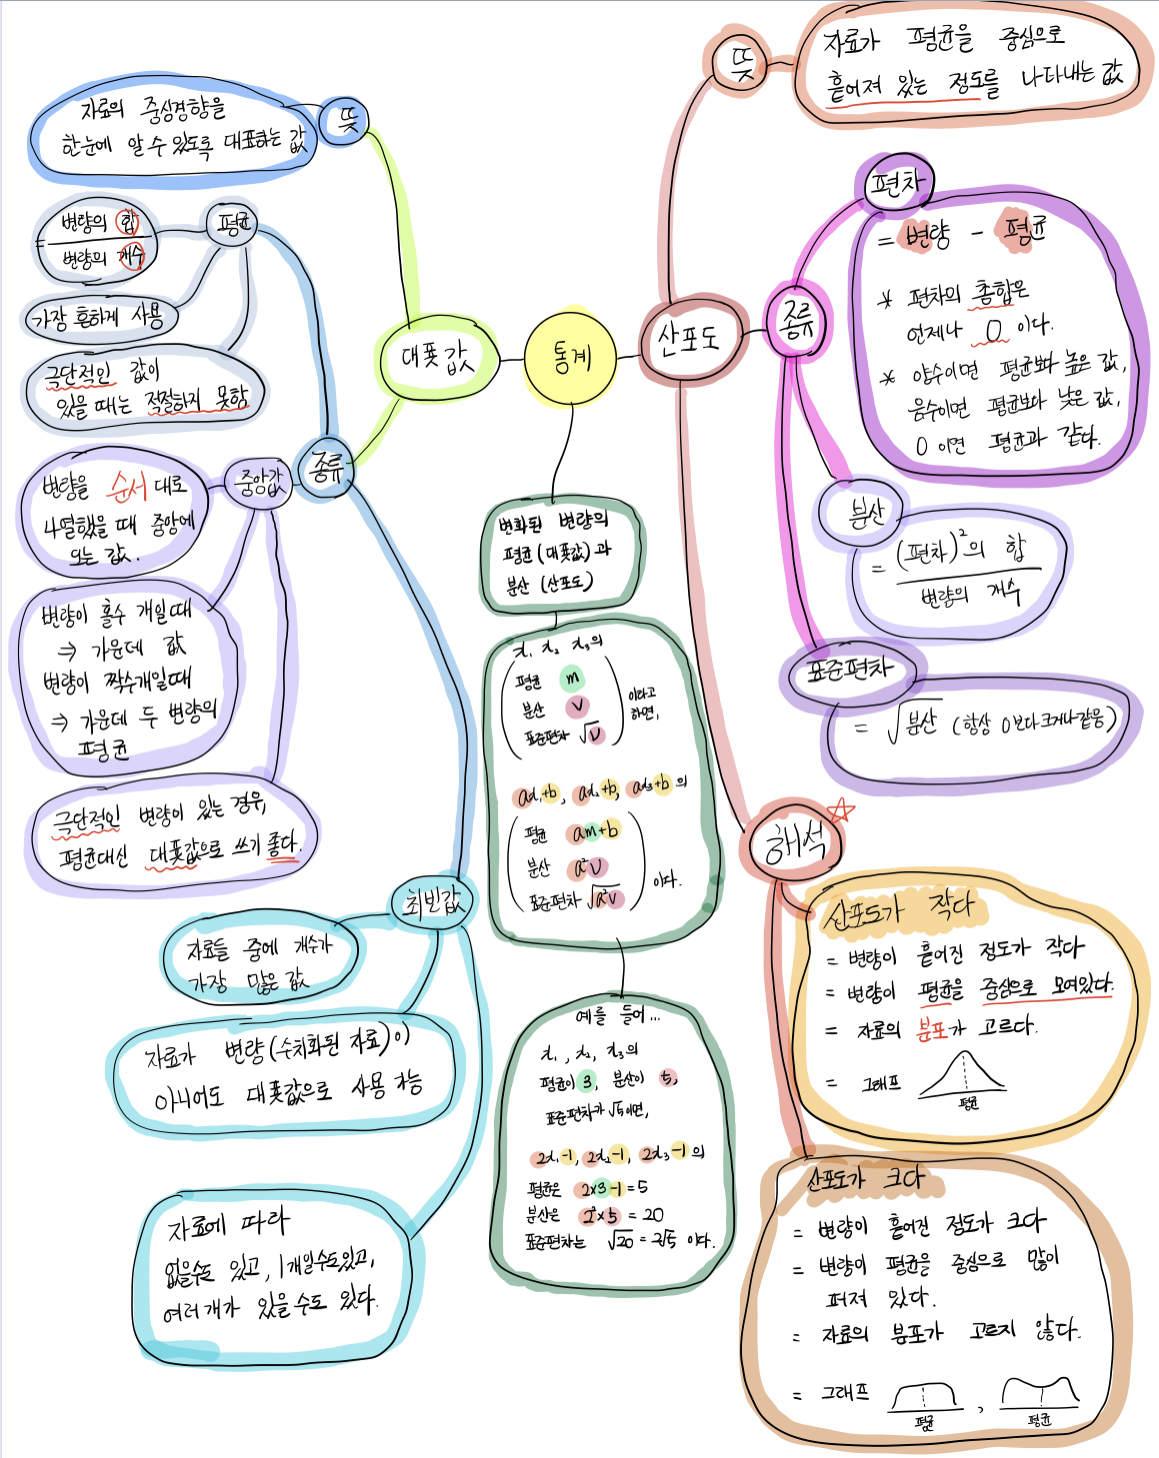 통계
대푯값
뜻
자료의 중심경향을
한눈에 알 수 있도록 대표하는 값
종류
평균
= 변량의 합
변량의 개수
가장 흔하게 사용
극단적인 값이
있을 때는 적절하지 못함
중앙값
변량을 순서대로
나열했을 때 중앙에
오는 값.
변량이 홀수 개일때
⇒ 가운데 값
변량이 짝수개일때
⇒ 가운데 두 변량의
평균
극단적인 변량이 있는 경우,
평균대신 대푯값으로 쓰기 좋다.
최빈값
자료들 중에 개수가
가장 많은 값
자료가 변량(수치화된 자료)이
아니어도 대푯값으로 사용 가능
자료에 따라
없을수도 있고, 1개일수도있고,
여러개가 있을수도 있다.
변화된 변량의
평균(대푯값)과
분산 (산포도)
x₁ x₂ x₃의
평균 m
분산 v
표준편차 √v
이라고
하면,
ax₁+b, ax₂+b, ax₃+b의
평균 am+b
분산 a²v
표준편차 √a²v
이다.
예를 들어...
x₁, x₂, x₃의
평균이 3, 분산이 5,
표준편차가 √5이면,
2x₁-1, 2x₂-1, 2x₃-1의
평균은 2×3-1=5
분산은 2²×5 = 20
표준편차는 √20 = 2√5 이다.
산포도
뜻
자료가 평균을 중심으로
흩어져 있는 정도를 나타내는 값
종류
편차
= 변량 - 평균
* 편차의 총합은
언제나 0 이다.
* 양수이면 평균보다 높은 값,
음수이면 평균보다 낮은 값,
0 이면 평균과 같다.
분산
= (편차)²의 합
변량의 개수
표준편차
= √분산 (항상 0보다크거나같음)
해석
산포도가 작다
= 변량이 흩어진 정도가 작다
= 변량이 평균을 중심으로 모여있다.
= 자료의 분포가 고르다.
= 그래프
평균
산포도가 크다
= 변량이 흩어진 정도가 크다
= 변량이 평균을 중심으로 많이
퍼져 있다.
= 자료의 분포가 고르지 않다.
= 그래프
평균
,
평균